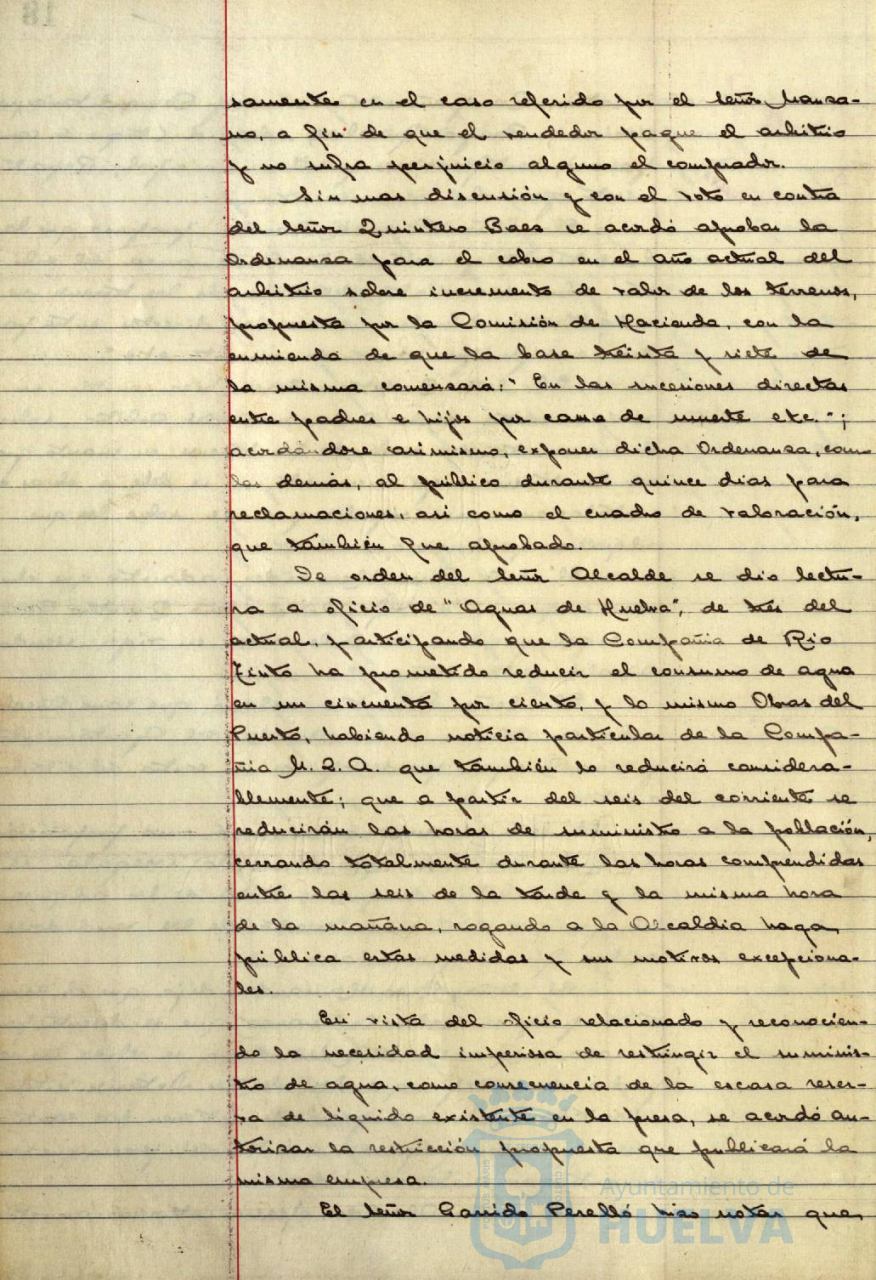 samente en el caso referido por el señor Manza-
no, a fin de que el vendedor pague el arbitrio
y no sufra perjuicio alguno el comprador.
Sin mas discusión y con el voto en contra
del señor Quintero Baez se acordó aprobar la
Ordenanza para el cobro en el año actual del
arbitrio sobre incremento de valor de los terrenos,
propuesta por la Comisión de Hacienda, con la
enmienda de que la base treinta y siete de
la misma comenzará: "En las sucesiones directas
entre padres e hijos por causa de muerte etc.";
acordándose asimismo, exponer dicha Ordenanza, como
las demás, al público durante quince dias para
reclamaciones, asi como el cuadro de valoración,
que también fue aprobado.
De orden del señor Alcalde se dio lectu-
ra a oficio de "Aguas de Huelva", de tres del
actual, participando que la Compañia de Rio
Tinto ha prometido reducir el consumo de agua
en un cincuenta por ciento, y lo mismo Obras del
Puerto, habiendo noticia particular de la Compa-
ñia M. Z. A. que también lo reducirá considera-
blemente; que a partir del seis del corriente se
reducirán las horas de suministro a la población,
cerrando totalmente durante las horas comprendidas
entre las seis de la tarde y la misma hora
de la mañana, rogando a la Alcaldia haga
pública estas medidas y sus motivos excepciona-
les.
En vista del oficio relacionado y reconocien-
do la necesidad imperiosa de restringir el suminis-
tro de agua, como consecuencia de la escasa reser-
va de liquido existente en la presa, se acordó au-
torizar la restricción propuesta que publicará la
misma empresa.
El señor Garrido Perelló hizo notar que,
Ayuntamiento de
HUELVA